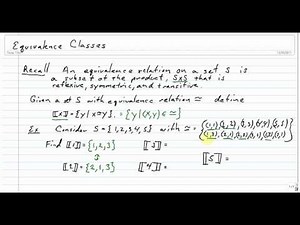 Equivalence Classes
Recall An equivalence relation on a set S is
a subset of the product, SxS that is
reflexive, symmetric, and transitive.
Given a set S with equivalence relation ≃ define
[[x]] = {y | x≃y} = {y | (x,y) ∈ ≃}
Ex Consider S = {1,2,3,4,5} with ≃ =
Find [[1]] = {1,2,3} [[3]] = [[5]] =
[[2]] = {2,1,3} [[4]] =